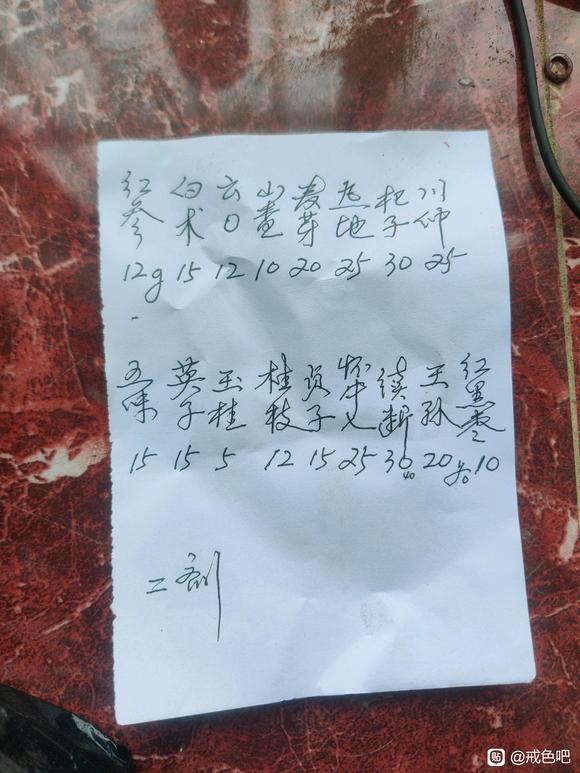 红参 白术 云 山 麦芽 熟地 杞子 川仲
12g 15 12 10 20 25 30 25
五味 英子 玉桂 桂枝 怀牛 续断 王孙 红黑枣
15 15 5 12 15 25 30 20 各10
40
二剂
贴 @戒色吧